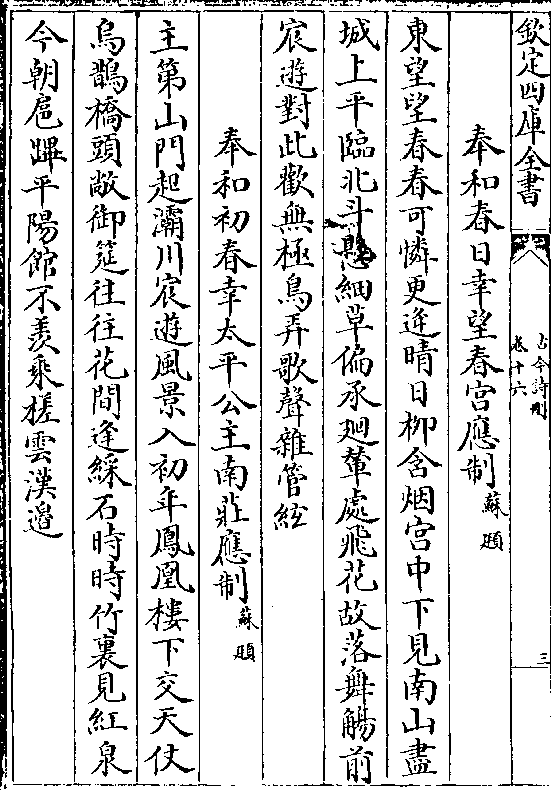 欽定四庫全書
古今詩刪
卷十六
三
奉和春日幸望春宮應制 蘇頲
東望望春春可憐更逄晴日栁含烟宫中下見南山盡
城上平臨北斗懸細草偏承廻輦處飛花故落舞觴前
宸遊對此歡無極鳥弄歌聲雜管絃
奉和初春幸太平公主南莊應制 蘇頲
主第山門起灞川宸遊風景入初年鳳凰樓下交天仗
烏鵲橋頭敞御筵往往花間逢綵石時時竹裏見紅泉
今朝扈蹕平陽館不羨乘槎雲漢邉